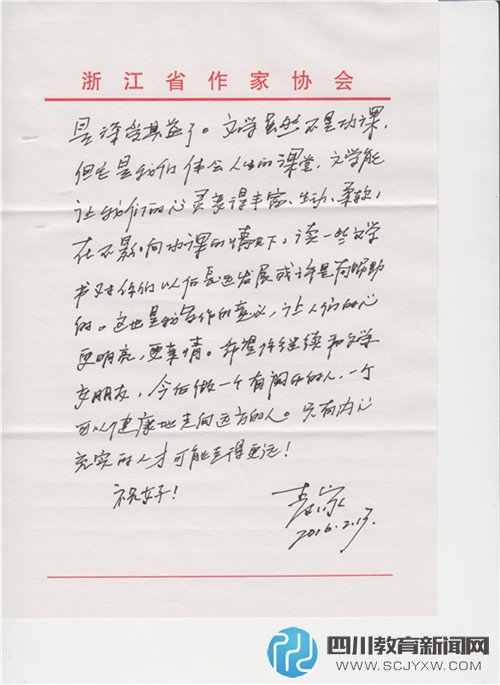 浙江省作家协会
是深受其益了。文学虽然不是功课，
但它是我们体会人生的课堂，文学能
让我们的心灵变得丰富、生动、柔软，
在不影响功课的情况下，读一些文学
书对你们以后长远发展或许是有帮助
的。这也是我写作的意义，让人们的心
更明亮，更真情。希望你继续和文学
交朋友，今后做一个有
的人，一个
可以健康地走向远方的人。只有内心
充实的人才可能走得更远！
祝好！
麦家
2016.2.17.
四川教育新闻网
WWW.SCJYXW.COM